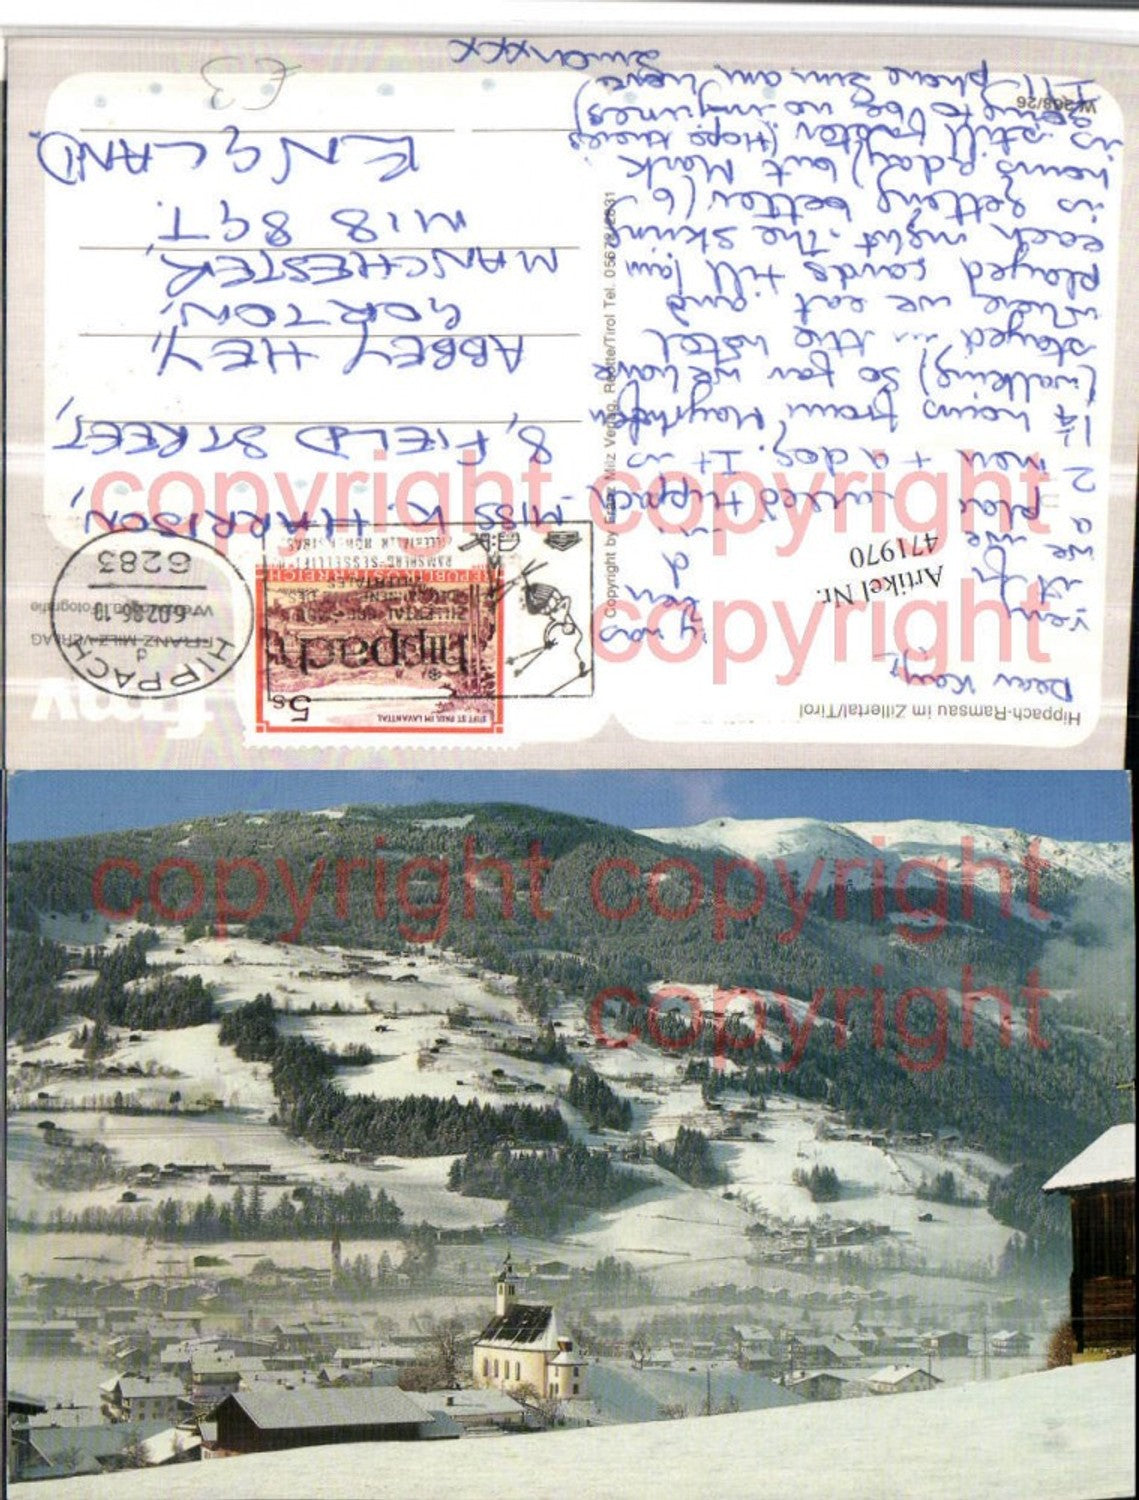 Hippach-Ramsau im Zillertal/Tirol
Dear Kay,
Artikel Nr.
471970
we are
a place called Hippach
2 men + a dog. It is
1¼ hours from Mayrhofen
(walking) so far we have
stayed in the hotel
where we eat and
played cards till 1am
each night. The skiing
is getting better (6
hours a day) but Mark
is still faster (Hope there's
going to be no injuries)
I'll phone Sun. am. Love
Simon xxx
W 208/26
Copyright by Franz Milz Verlag, Reutte/Tirol Tel.
fmv
FRANZ-MILZ-VERLAG
STIFT ST. PAUL IM LAVANTTAL
5S
REPUBLIK ÖSTERREICH
HIPPACH
6.02.86.10
d
6283
Hippach
ZILLERTAL
RAMSBERG-SESSELLIFT
MISS K. HARRISON,
8, FIELD STREET,
ABBEY HEY,
GORTON,
MANCHESTER,
M18 8GT.
ENGLAND.
£3
copyright copyright
copyright
copyright copyright
copyright